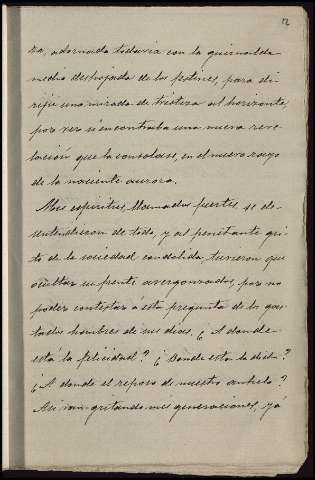 12
za, adornada todavia con la guirnalda
medio deshojada de los festines, para di
rigir una mirada de tristeza al horizonte,
por ver si encontraba una nueva reve
lación que la consolase, en el nuevo rayo
de la naciente aurora.
Mas espiritus, llamados fuertes, se de-
sentendieron de todo, y al penetrante gri
to de la sociedad condolida, tuvieron que
ocultar su frente avergonzados, por no
poder contestar á esta pregunta de los gas
tados hombres de sus dias. ¿A donde
esta la felicidad? ¿Donde esta la dicha?
¿A donde el reposo de nuestro anhelo?
Asi van gritando mis generaciones, yá